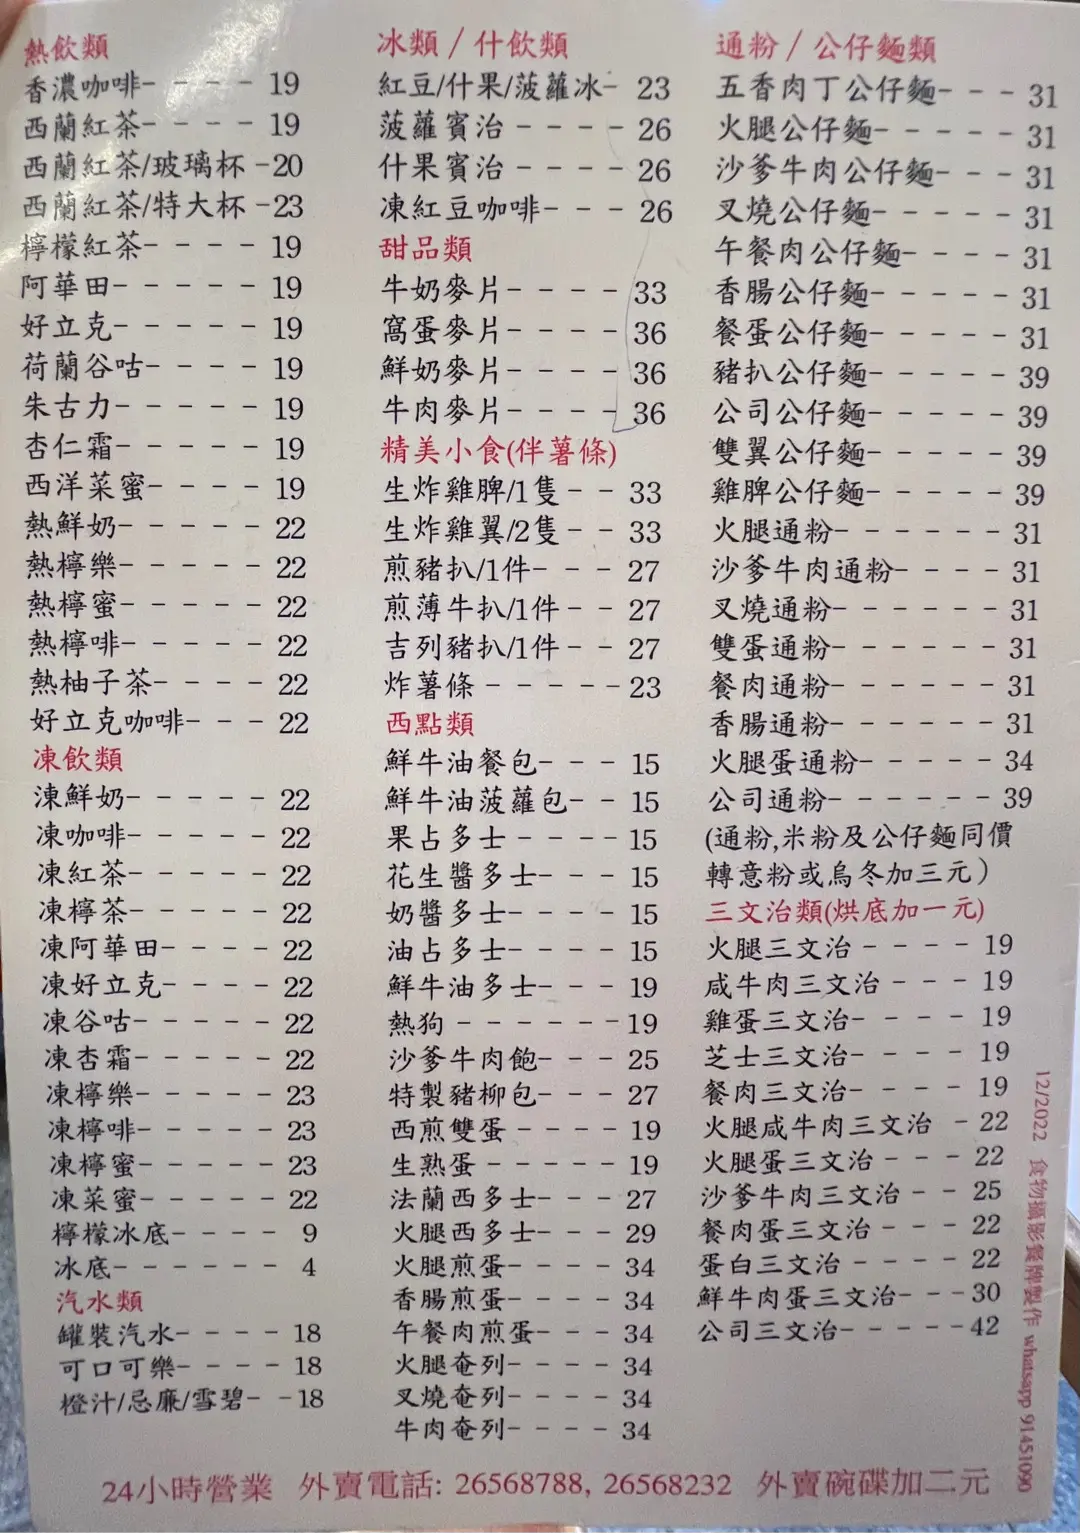 熱飲類
香濃咖啡- - - - - 19
西蘭紅茶- - - - - 19
西蘭紅茶/玻璃杯 -20
西蘭紅茶/特大杯 -23
檸檬紅茶- - - - 19
阿華田- - - - - 19
好立克- - - - - 19
荷蘭谷咕- - - - 19
朱古力- - - - - 19
杏仁霜- - - - - 19
西洋菜蜜- - - - 19
熱鮮奶- - - - - 22
熱檸樂- - - - - 22
熱檸蜜- - - - - 22
熱檸啡- - - - - 22
熱柚子茶- - - - 22
好立克咖啡- - - 22
凍飲類
凍鮮奶- - - - - 22
凍咖啡- - - - - 22
凍紅茶- - - - - 22
凍檸茶- - - - - 22
凍阿華田- - - - 22
凍好立克- - - - 22
凍谷咕- - - - - 22
凍杏霜- - - - - 22
凍檸樂- - - - - 23
凍檸啡- - - - - 23
凍檸蜜- - - - - 23
凍菜蜜- - - - - 22
檸檬冰底- - - - 9
冰底- - - - - - 4
汽水類
罐裝汽水- - - - 18
可口可樂- - - - 18
橙汁/忌廉/雪碧- -18
冰類 / 什飲類
紅豆/什果/菠蘿冰- 23
菠蘿賓治 - - - - 26
什果賓治 - - - - 26
凍紅豆咖啡- - - 26
甜品類
牛奶麥片- - - - 33
窩蛋麥片- - - - 36
鮮奶麥片- - - - 36
牛肉麥片- - - - 36
精美小食(伴薯條)
生炸雞脾/1隻 - - 33
生炸雞翼/2隻 - - 33
煎豬扒/1件- - - 27
煎薄牛扒/1件 - - 27
吉列豬扒/1件 - - 27
炸薯條 - - - - - 23
西點類
鮮牛油餐包- - - 15
鮮牛油菠蘿包- - 15
果占多士 - - - - 15
花生醬多士- - - 15
奶醬多士- - - - 15
油占多士- - - - 15
鮮牛油多士- - - 19
熱狗 - - - - - - 19
沙爹牛肉飽- - - 25
特製豬柳包- - - 27
西煎雙蛋 - - - - 19
生熟蛋 - - - - - 19
法蘭西多士- - - 27
火腿西多士- - - 29
火腿煎蛋- - - - 34
香腸煎蛋- - - - 34
午餐肉煎蛋- - - 34
火腿奄列- - - - 34
叉燒奄列- - - - 34
牛肉奄列- - - - 34
通粉 / 公仔麵類
五香肉丁公仔麵- - - 31
火腿公仔麵- - - - - 31
沙爹牛肉公仔麵- - - 31
叉燒公仔麵- - - - - 31
午餐肉公仔麵- - - - 31
香腸公仔麵- - - - - 31
餐蛋公仔麵- - - - - 31
豬扒公仔麵- - - - - 39
公司公仔麵- - - - - 39
雙翼公仔麵- - - - - 39
雞脾公仔麵- - - - - 39
火腿通粉- - - - - - 31
沙爹牛肉通粉- - - - 31
叉燒通粉- - - - - - 31
雙蛋通粉- - - - - - 31
餐肉通粉- - - - - - 31
香腸通粉- - - - - - 31
火腿蛋通粉- - - - - 34
公司通粉- - - - - - 39
(通粉,米粉及公仔麵同價
轉意粉或烏冬加三元)
三文治類(烘底加一元)
火腿三文治 - - - - 19
咸牛肉三文治 - - - 19
雞蛋三文治- - - - 19
芝士三文治- - - - 19
餐肉三文治- - - - 19
火腿咸牛肉三文治 - 22
火腿蛋三文治 - - - 22
沙爹牛肉三文治 - - 25
餐肉蛋三文治 - - - 22
蛋白三文治 - - - - 22
鮮牛肉蛋三文治- - -30
公司三文治- - - - -42
12/2022 食物攝影餐牌製作 whatsapp 91451090
24小時營業 外賣電話: 26568788, 26568232 外賣碗碟加二元